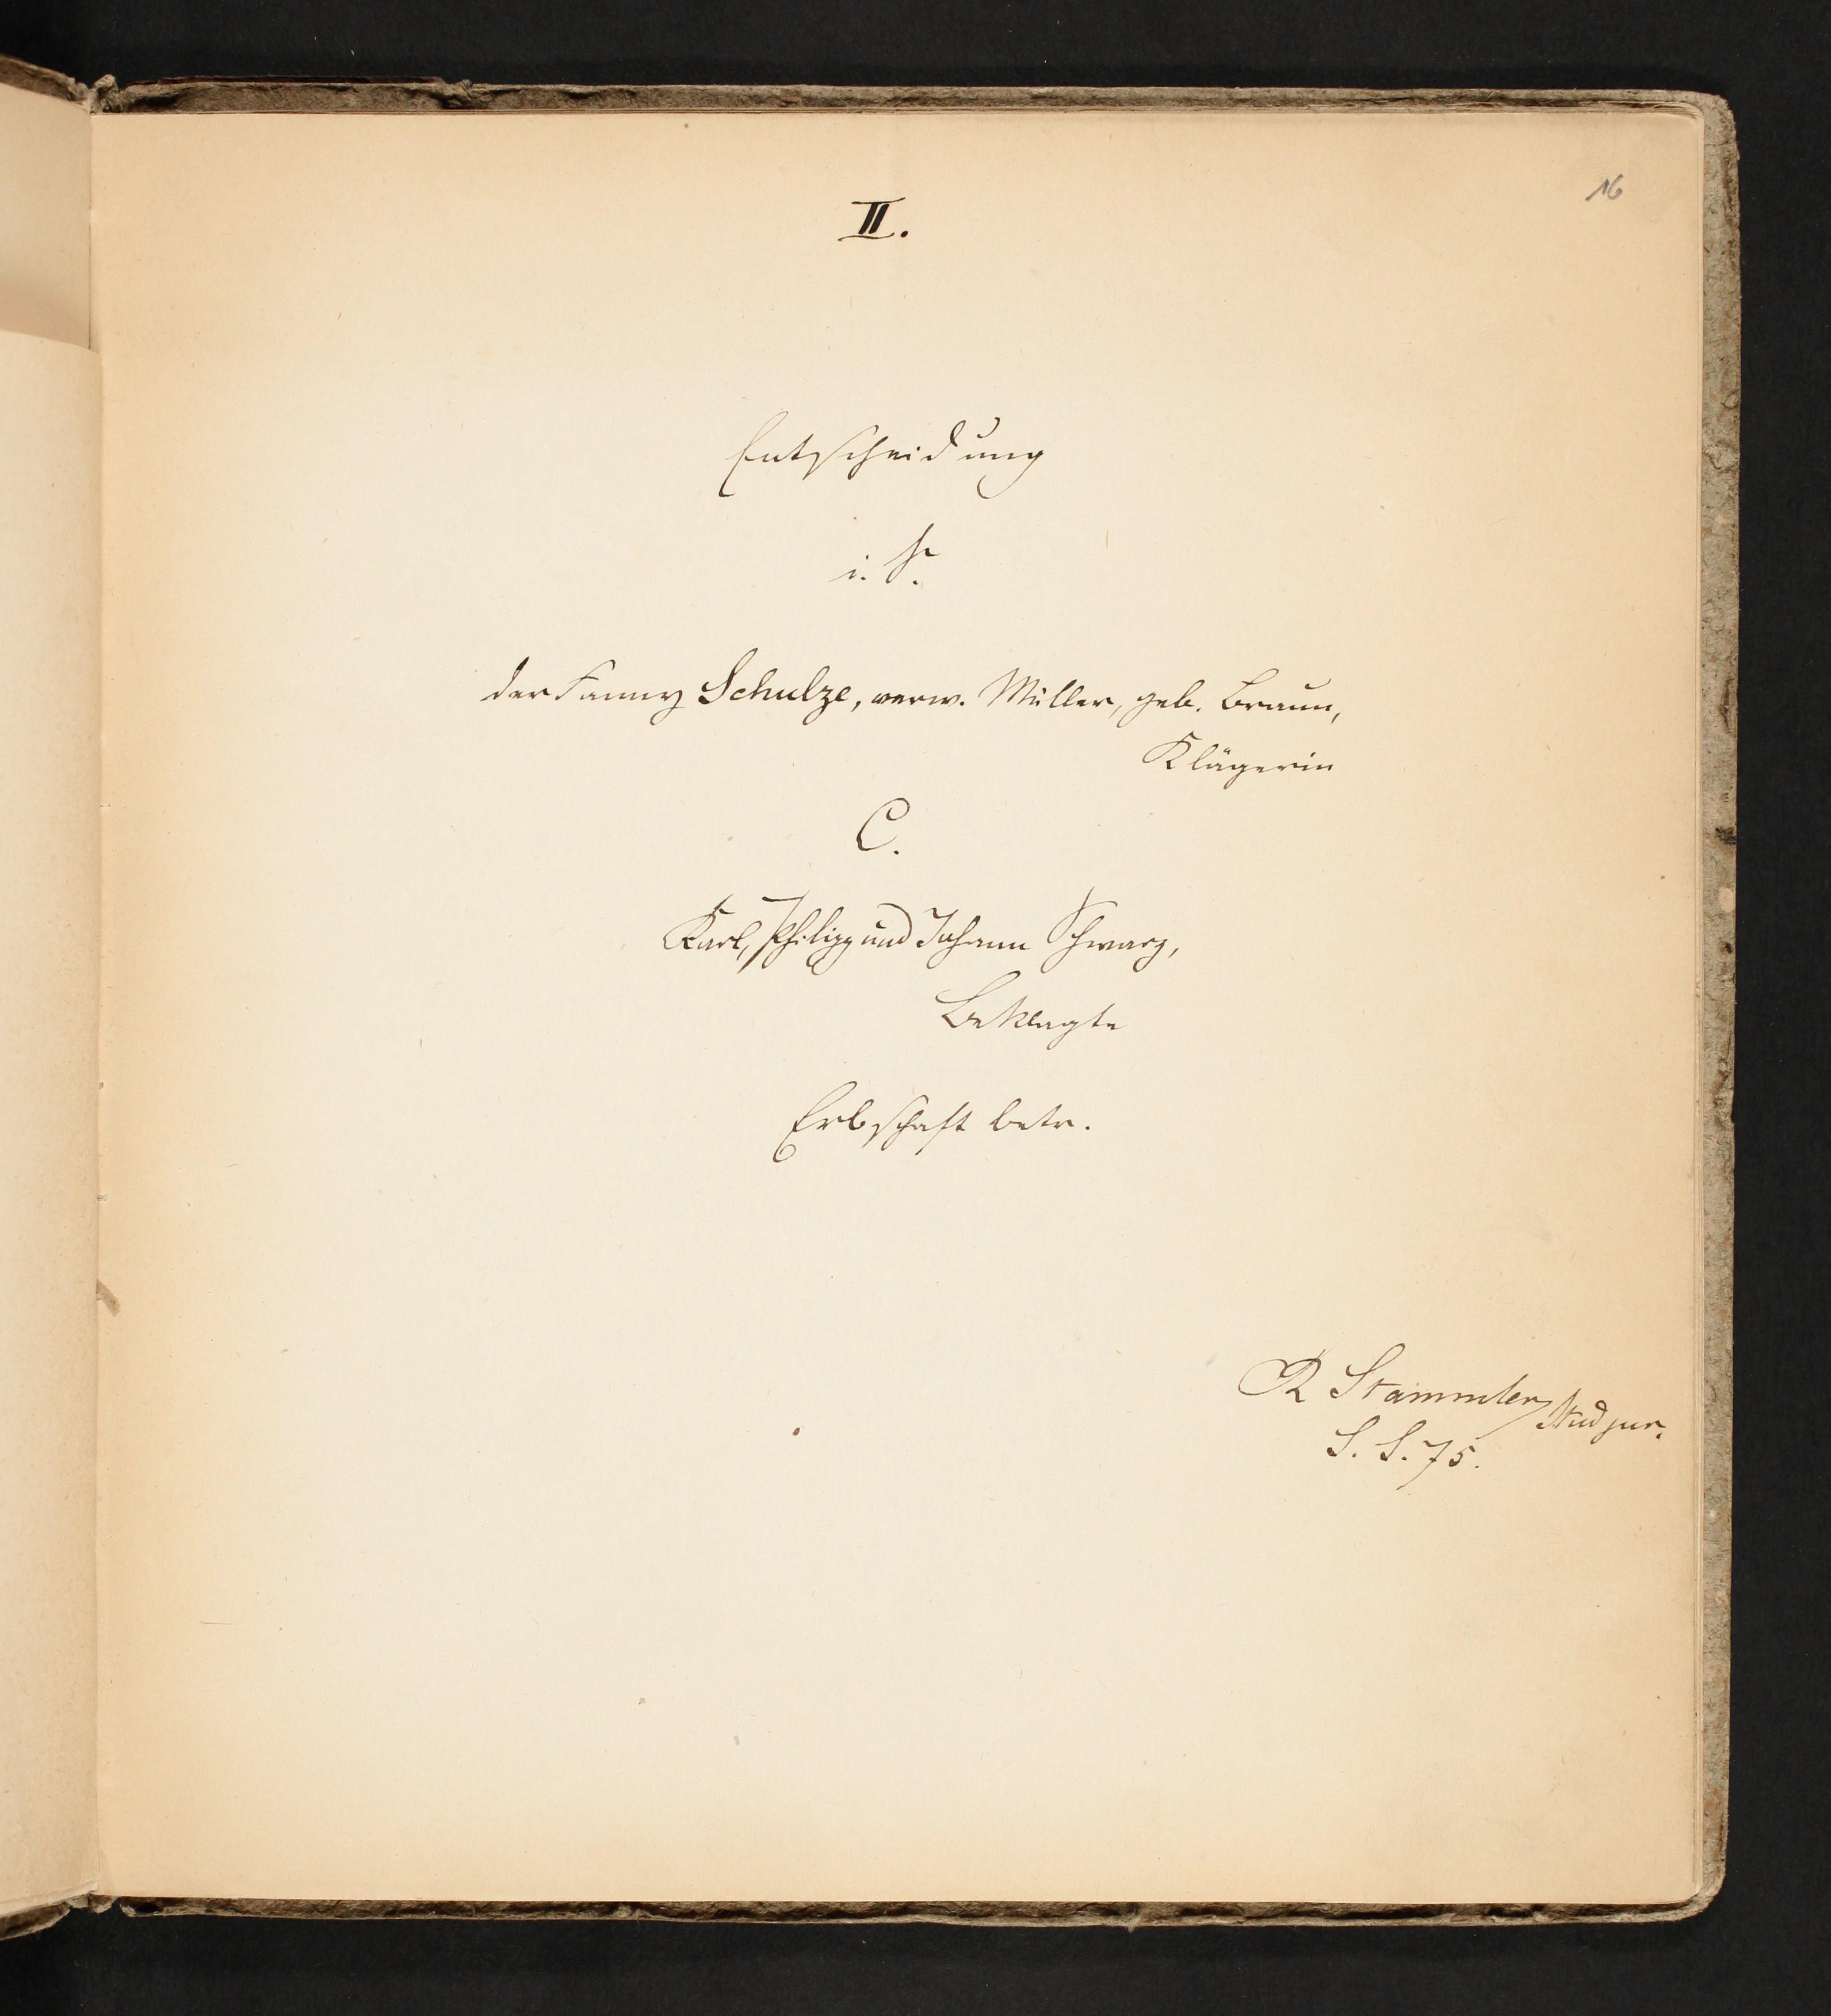 16
II.
Entscheidung
i. S.
der Fanny Schulze, verw. Müller, geb. Braun,
Klägerin
C.
Karl, Philipp und Johann Schwarz,
Beklagte
Erbschaft betr.
R Stammler stud jur.
S. S. 75.